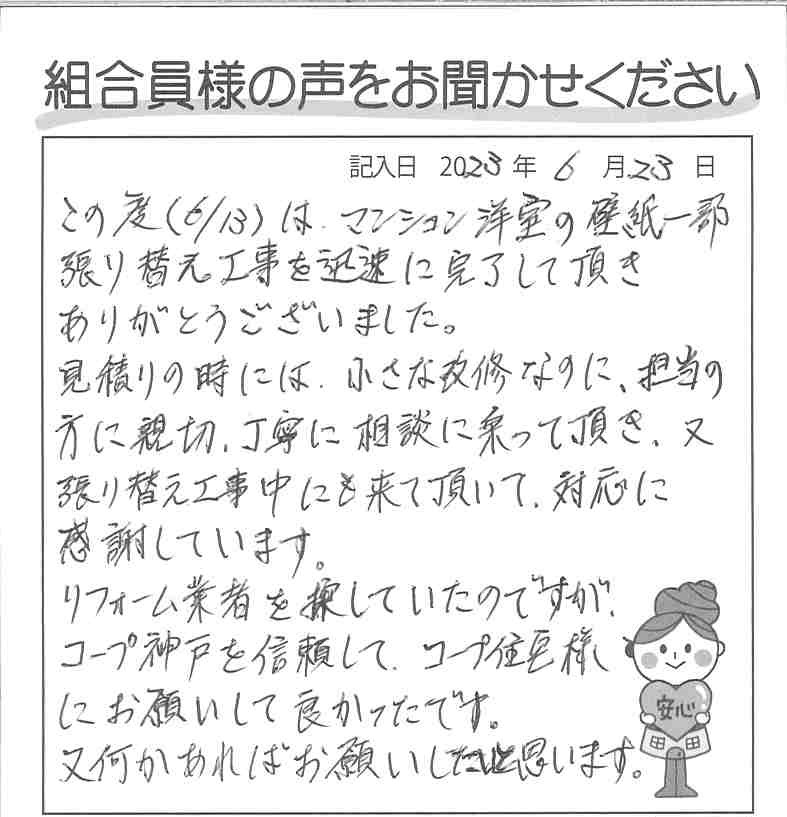 組合員様の声をお聞かせください
記入日 2023年 6月23日
この度(6/13)は、マンション洋室の壁紙一部
張り替え工事を迅速に完了して頂き
ありがとうございました。
見積りの時には、小さな改修なのに、担当の
方に親切、丁寧に相談に乗って頂き、又
張り替え工事中にも来て頂いて、対応に
感謝しています。
リフォーム業者を探していたのですが、
コープ神戸を信頼して、コープ住宅様
にお願いして良かったです。
又何かあればお願いしたいと思います。
安心